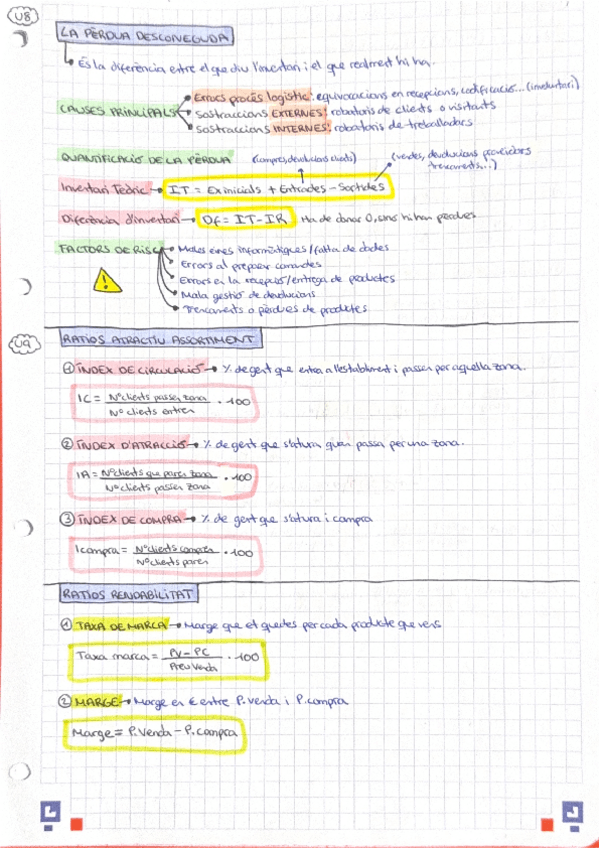 U8
LA PÈRDUA DESCONEGUDA
És la diferència entre el que diu l'inventari i el que realment hi ha.
CAUSES PRINCIPALS
Errors procés logístic: equivocacions en recepcions, codificació... (involuntari)
Sostraccions EXTERNES: robatoris de clients o visitants
Sostraccions INTERNES: robatoris de treballadors
QUANTIFICACIÓ DE LA PÈRDUA
(compres, devolucions clients)
(vendes, devolucions proveïdors
trencaments...)
Inventari Teòric → IT = Ex.inicials + Entrades - Sortides
Diferència d'inventari → Df = IT - IR Ha de donar 0, sino hi han pèrdues
FACTORS DE RISC
Males eines informàtiques / falta de dades
Errors al preparar comandes
Errors en la recepció / entrega de productes
Mala gestió de devolucions
Trencaments o pèrdues de productes
U9
RATIOS ATRACTIU ASSORTIMENT
① ÍNDEX DE CIRCULACIÓ → % de gent que entra a l'establiment i passen per aquella zona.
IC = Nº clients passen zona / Nº clients entren · 100
② ÍNDEX D'ATRACCIÓ → % de gent que s'atura quan passa per una zona.
IA = Nº clients que paren zona / Nº clients passen zona · 100
③ ÍNDEX DE COMPRA → % de gent que s'atura i compra
I compra = Nº clients compren / Nº clients paren · 100
RATIOS RENDABILITAT
① TAXA DE MARCA → Marge que et quedes per cada producte que vens
Taxa marca = PV - PC / Preu venda · 100
② MARGE → Marge en € entre P. venda i P. compra
Marge = P. Venda - P. compra